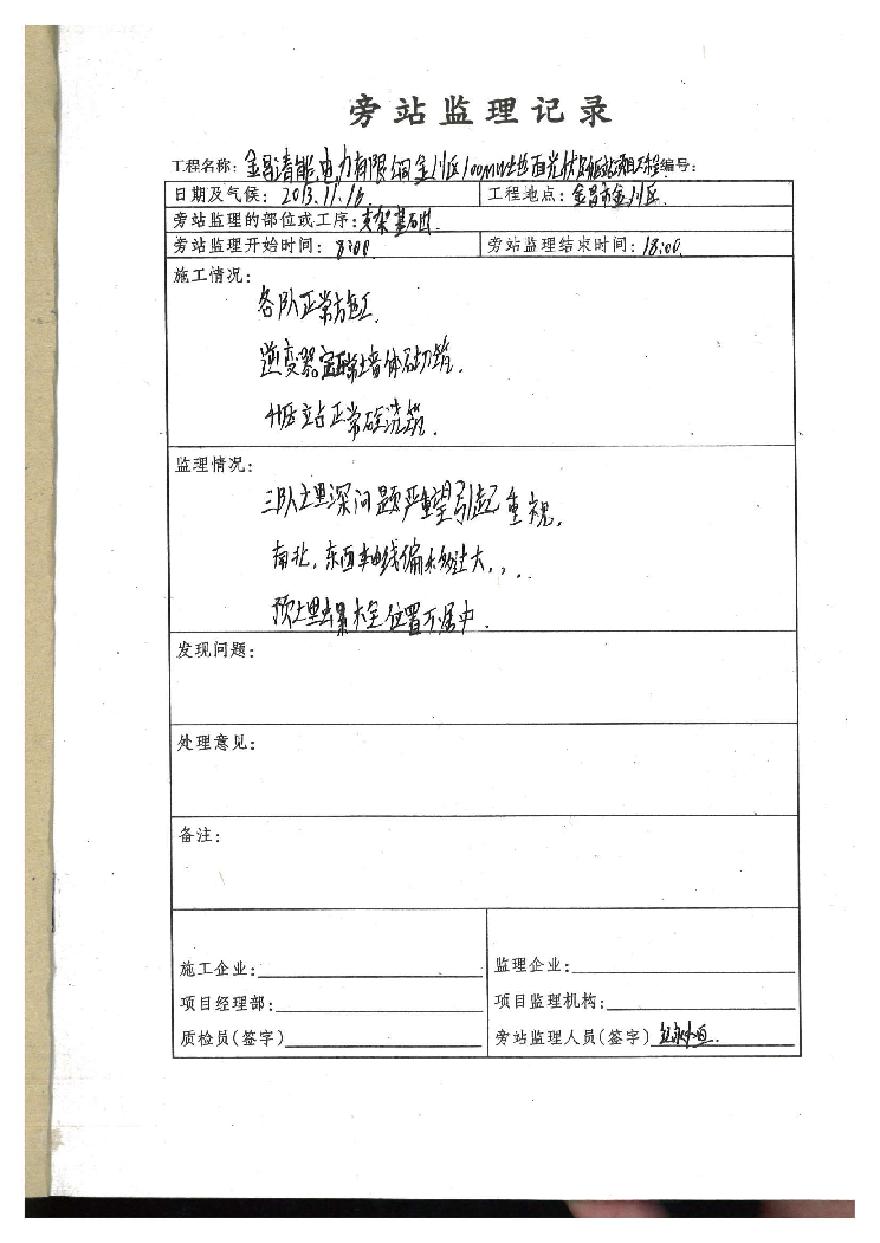 旁站监理记录
工程名称：金昌清能电力有限公司金川区100MW地面光伏 项目工程编号：
日期及气候：2013.11.16. 工程地点：金昌市金川区.
旁站监理的部位或工序：支架基础.
旁站监理开始时间：8:00 旁站监理结束时间：18:00.
施工情况：
各队正常施工.
逆变器室正常墙体砌筑.
升压站正常砼浇筑.
监理情况：
三队埋深问题严重望引起重视.
南北.东西轴线偏 过大.
预埋 位置不居中.
发现问题：
处理意见：
备注：
施工企业： 监理企业：
项目经理部： 项目监理机构：
质检员(签字) 旁站监理人员(签字)